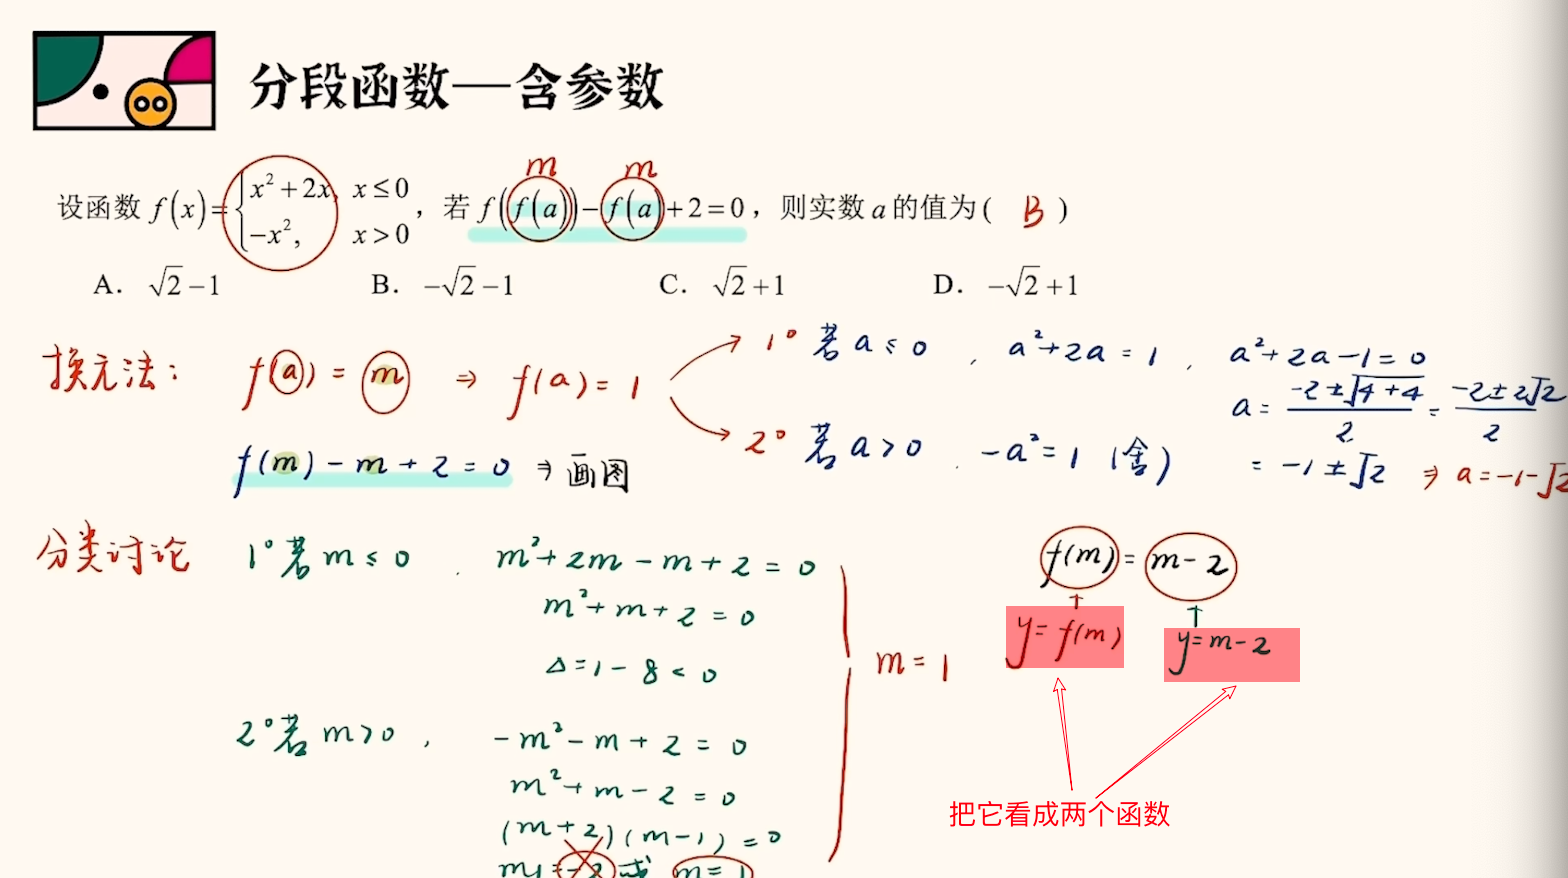 分段函数—含参数
m m
设函数 f(x)={x²+2x, x≤0
-x², x>0 ,若 f(f(a))-f(a)+2=0,则实数 a 的值为( B )
A. √2-1 B. -√2-1 C. √2+1 D. -√2+1
换元法: f(a) = m ⇒ f(a) = 1
1° 若 a ≤ 0 , a²+2a = 1 , a²+2a-1=0
a = (-2±√(4+4))/2 = (-2±2√2)/2
= -1±√2 ⇒ a=-1-√2
2° 若 a>0 , -a²=1 (舍)
f(m) - m + 2 = 0 ⇒ 画图
分类讨论 1° 若 m ≤ 0 , m²+2m-m+2=0
m²+m+2=0
Δ=1-8<0
2° 若 m>0 , -m²-m+2=0
m²+m-2=0
(m+2)(m-1)=0
m1=-2 或 m=1
m=1
f(m) = m-2
↑ ↑
y=f(m) y=m-2
把它看成两个函数